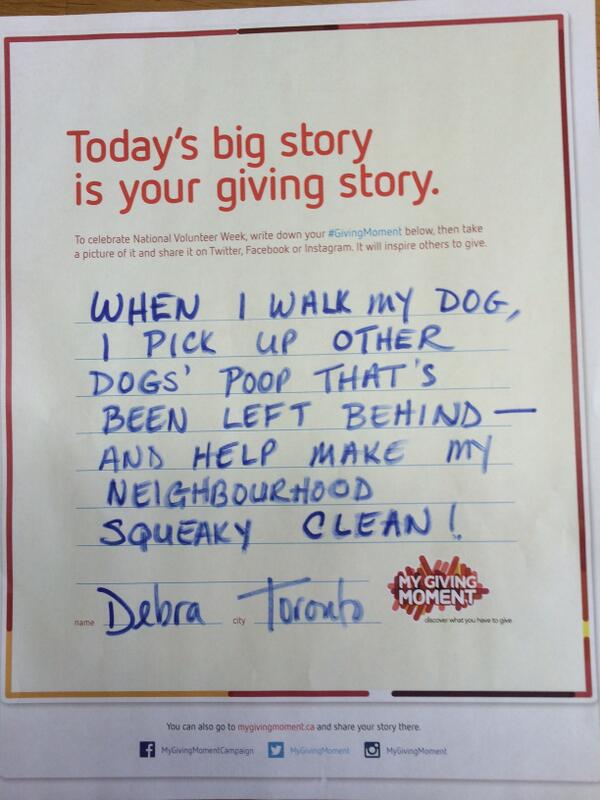 Today's big story
is your giving story.
To celebrate National Volunteer Week, write down your #GivingMoment below, then take
a picture of it and share it on Twitter, Facebook or Instagram. It will inspire others to give.
WHEN I WALK MY DOG,
I PICK UP OTHER
DOGS' POOP THAT'S
BEEN LEFT BEHIND—
AND HELP MAKE MY
NEIGHBOURHOOD
SQUEAKY CLEAN!
name Debra city Toronto
MY GIVING
MOMENT
discover what you have to give
You can also go to mygivingmoment.ca and share your story there.
MyGivingMomentCampaign MyGivingMoment MyGivingMoment